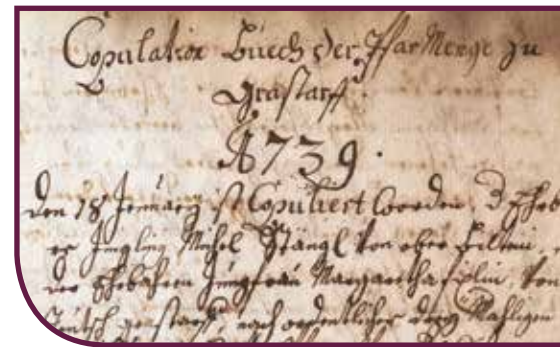 Copulation Buech der Pfar Menge zu
Grastarff
1739.
Den 18 Jenuarÿ ist Copuliert worden, d Ehrb
er Jungling Michel Stängl von ober
der Ehrbahren Jungfrau Margaretha von
Teutsch grastarff, nach ordentlicher Mahligen